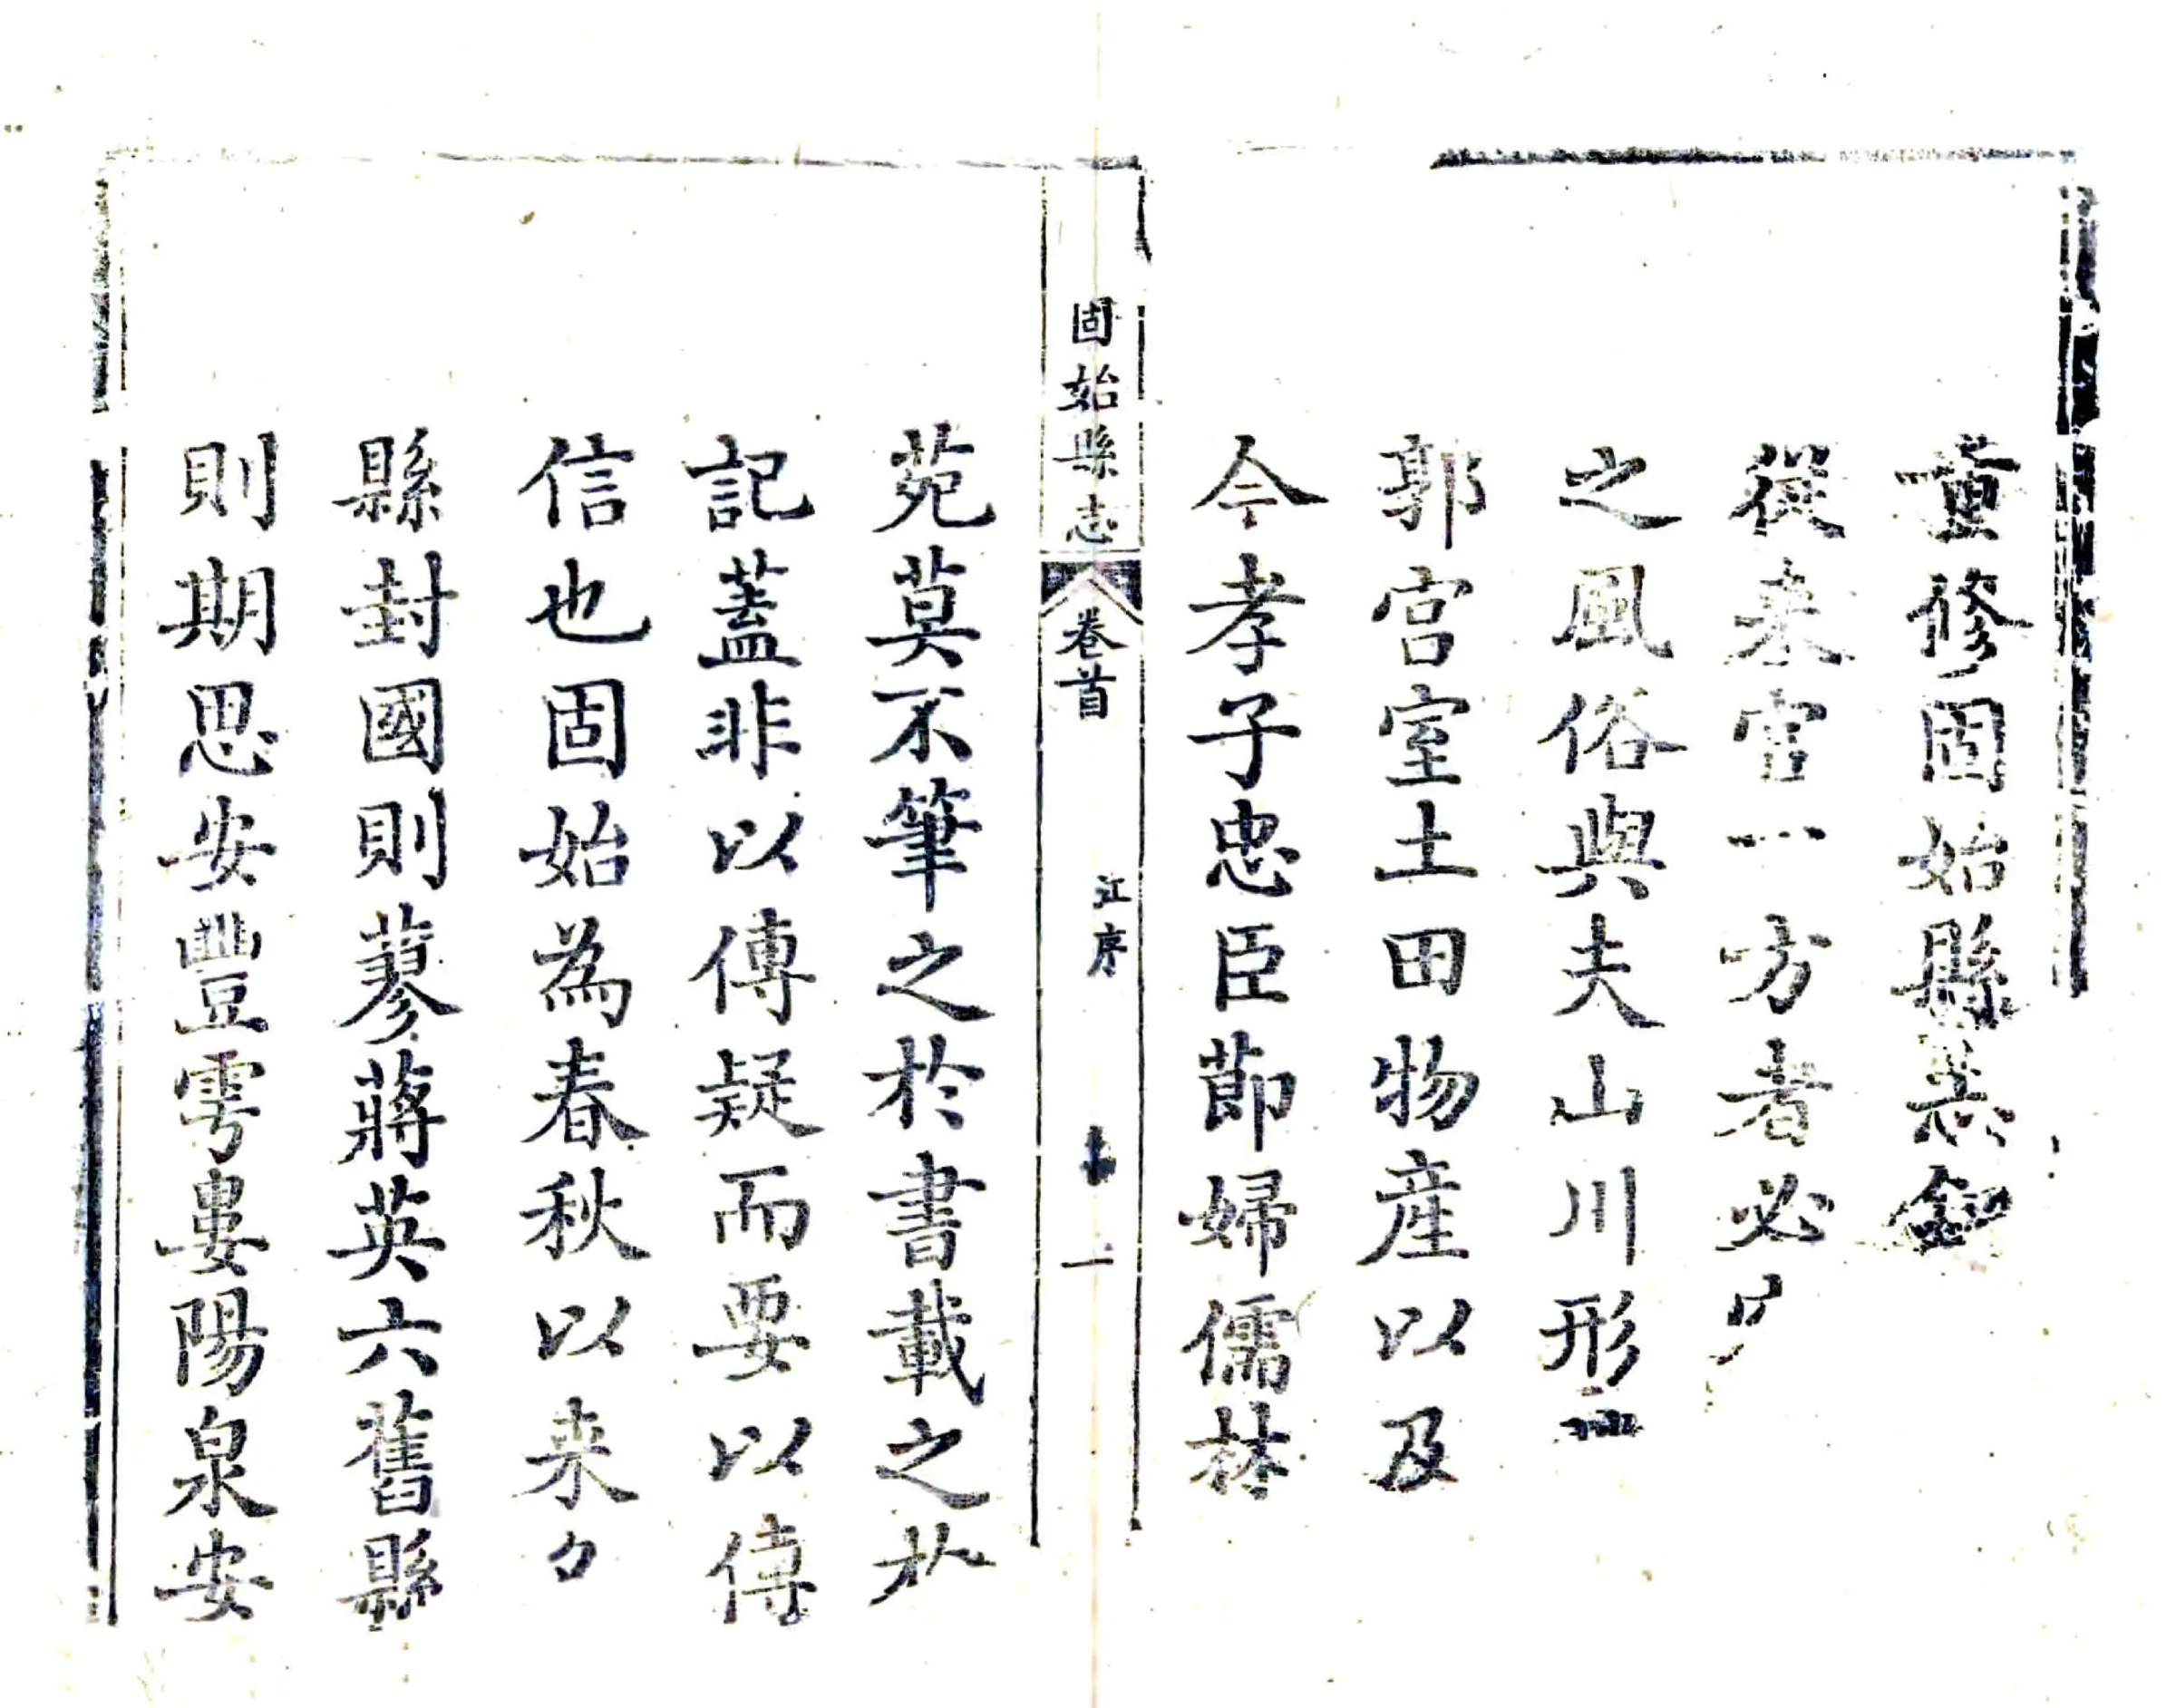 重修固始縣志叙
從来官一方者必
之風俗與夫山川形
郭宫室土田物産以及
今孝子忠臣節婦儒林
固始縣志
卷首
江序
一
苑莫不筆之於書載之於
記蓋非以傳疑而要以傳
信也固始為春秋以来
縣封國則蓼蔣英六舊縣
則期思安豐雩婁陽泉安